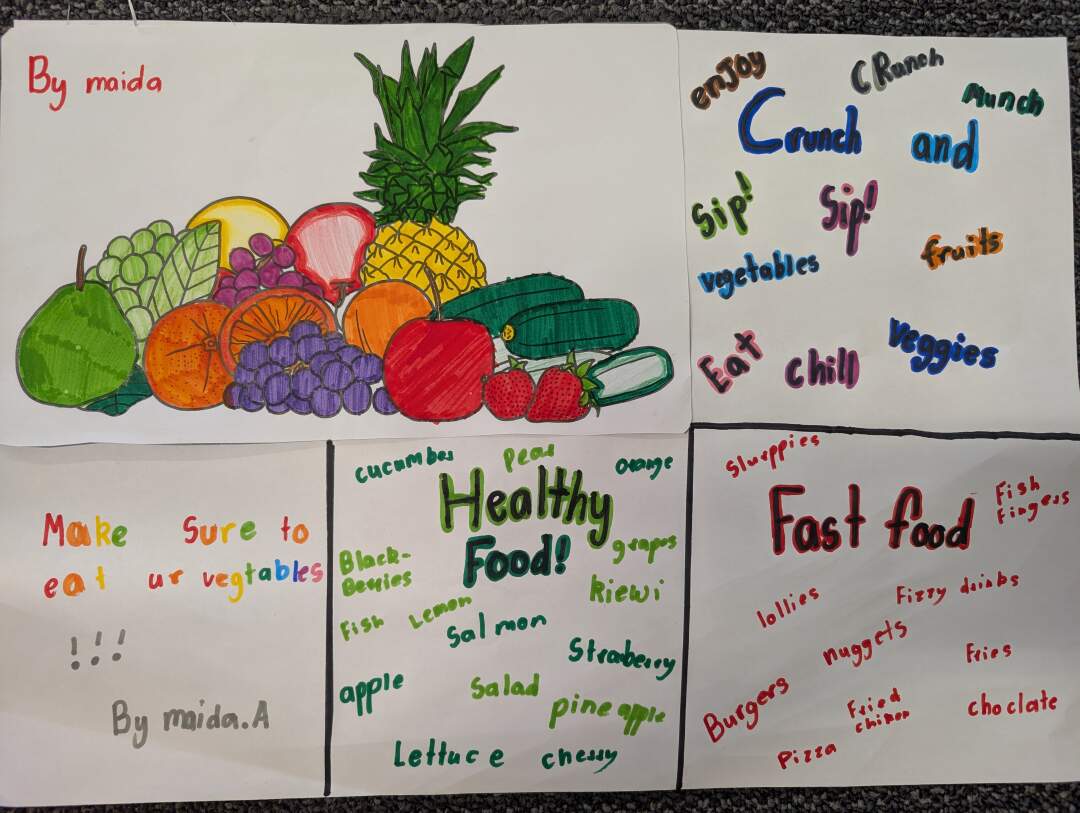 By maida
enjoy
CRunch
Munch
Crunch and
Sip! Sip!
vegetables
fruits
Eat
chill
Veggies
Make Sure to
eat ur vegtables
!!!
By maida.A
cucumber
Pear
orange
Healthy
Food!
Black-
Berries
grapes
kiewi
Fish
Lemon
Salmon
Straberry
apple
Salad
pineapple
Lettuce
cherry
Slurppies
Fast food
Fish
Fingers
lollies
Fizzy drinks
nuggets
Fries
Burgers
Fried
chiken
choclate
Pizza